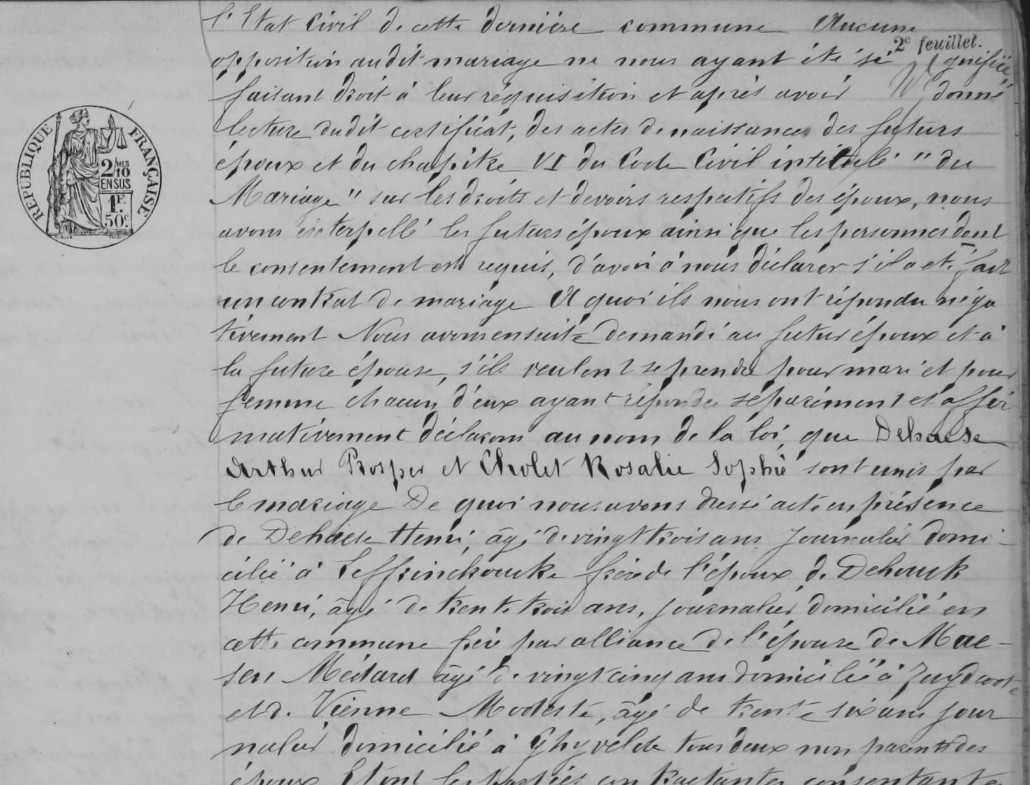 l'Etat Civil de cette dernière commune Aucune
2e feuillet.
opposition au dit mariage ne nous ayant été signifiée
faisant droit à leur réquisition et après avoir donné
lecture dudit certificat, des actes de naissances des futurs
époux et du chapitre VI du Code Civil intitulé " du
Mariage " sur les droits et devoirs respectifs des époux, nous
avons interpellé les futurs époux ainsi que les personnes dont
le consentement est requis, d'avoir à nous déclarer s'il a été fait
un contrat de mariage A quoi ils nous ont répondu néga
tivement Nous avons ensuite demandé au futur époux et à
la future épouse, s'ils veulent se prendre pour mari et pour
femme chacun d'eux ayant répondu séparément et affir
mativement déclarons au nom de la loi que Dehaese
Arthur Prosper et Cholet Rosalie Sophie sont unis par
le mariage De quoi nous avons dressé acte en présence
de Dehaese Henri, âgé de vingt trois ans Journalier domi-
cilié à Leffrinckoucke frère de l'époux, de Dehouck
Henri, âgé de trente trois ans, journalier domicilié en
cette commune frère par alliance de l'épouse de Mae-
sen Médard âgé de vingt cinq ans domicilié à Zuydcoote
et de Vienne Modeste, âgé de trente six ans jour
nalier domicilié à Ghyvelde tous deux non parents des
époux Et ont les parties contractantes consentantes
RÉPUBLIQUE FRANÇAISE
2/10
EN SUS
1F.
50c